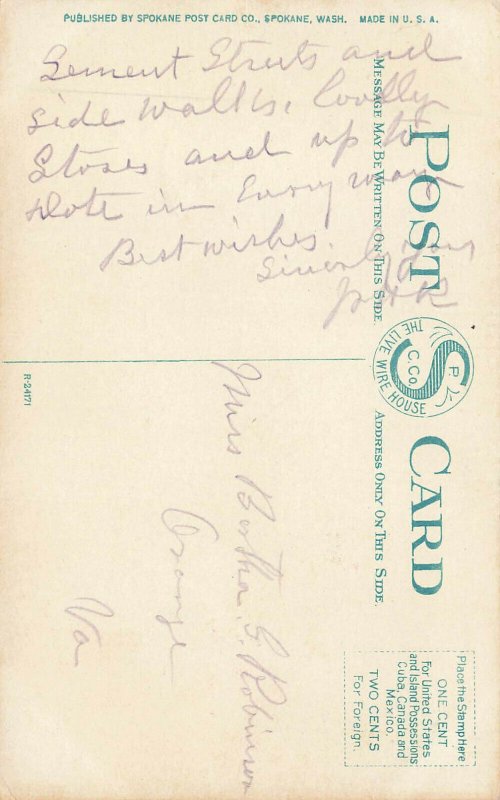 PUBLISHED BY SPOKANE POST CARD CO., SPOKANE, WASH. MADE IN U. S. A.
Sement Streets and
side walks, lovely
Stores and up to
date in Every way
Best wishes.
Sincerely your
POST CARD
MESSAGE MAY BE WRITTEN ON THIS SIDE.
ADDRESS ONLY ON THIS SIDE.
S P. C. Co.
THE LIVE WIRE HOUSE
R-24171
Miss Bertha G. Robinson
Orange
Va
Place the Stamp Here
ONE CENT
For United States
and Island Possessions
Cuba, Canada and
Mexico.
TWO CENTS
For Foreign.